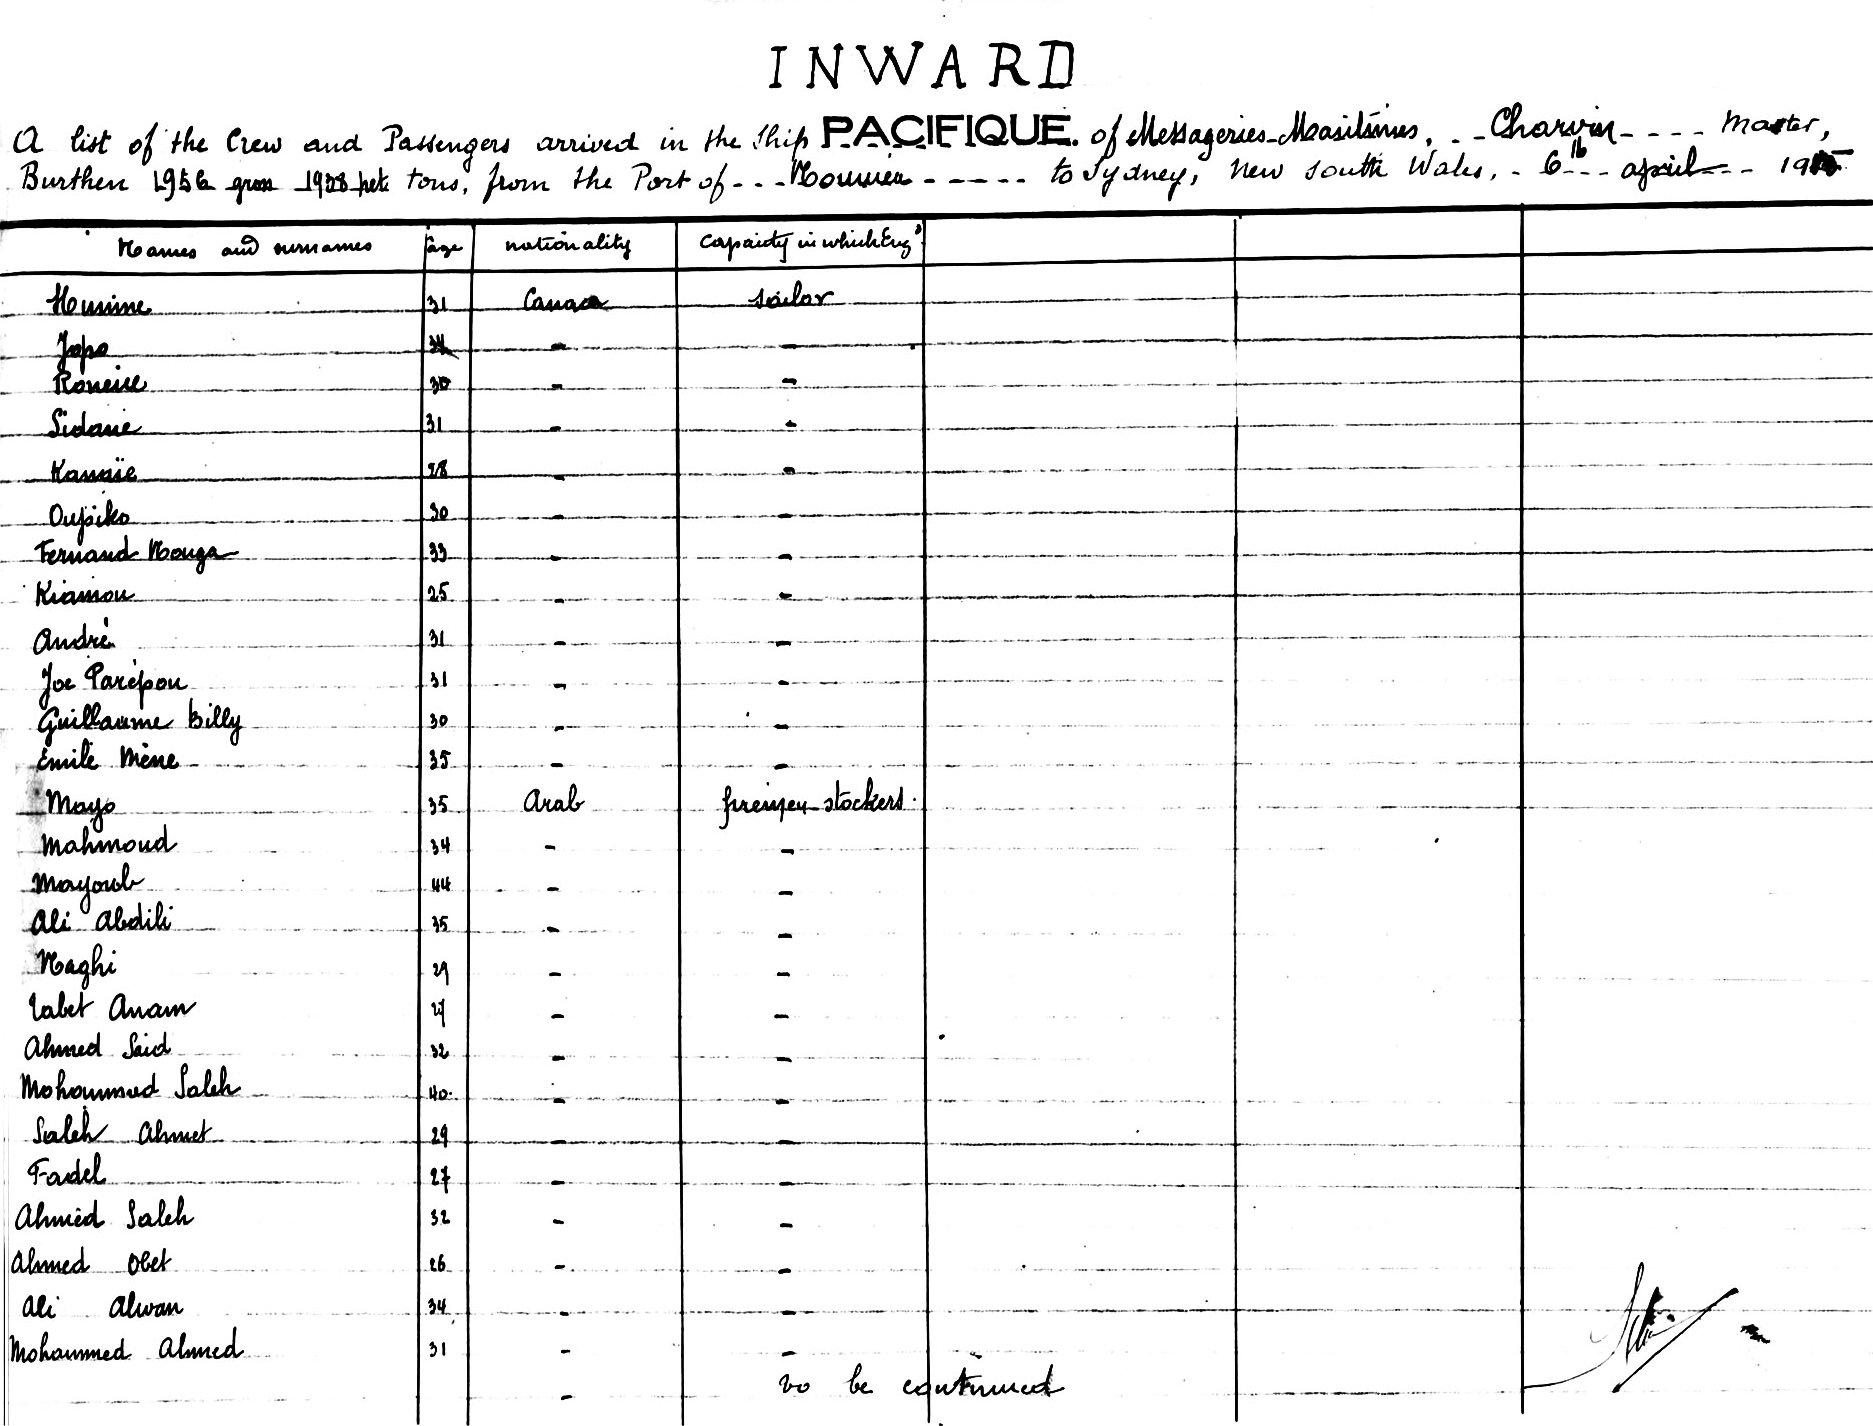 INWARD
A list of the Crew and Passengers arrived in the Ship PACIFIQUE. of Messageries Maritimes, Charvin Master,
Burthen gross net tons, from the Port of Nouméa to Sydney, New South Wales, 6th april 19
Names and surnames age nationality capacity in which Engd
31 Canaca sailor
Jopo - -
30 - -
Sidanie 31 - -
Kanaïe 28 - -
Oupiko 30 - -
Fernand Nouga 33 - -
Kiamou 25 - -
André 31 - -
Joe Parépou 31 - -
Guillaume Billy 30 - -
Emile Mène 35 - -
Mayo 35 Arab firemen-stockers
Mahmoud 34 - -
Mayoub 44 - -
Ali Abdili 35 - -
Naghi 29 - -
Tabet Anam 27 - -
Ahmed Said 32 - -
Mohammed Saleh 40 - -
Saleh Ahmet 29 - -
Fadel 27 - -
Ahmed Saleh 32 - -
Ahmed Obet 26 - -
Ali Alwan 34 - -
Mohammed Ahmed 31 - -
- to be continued